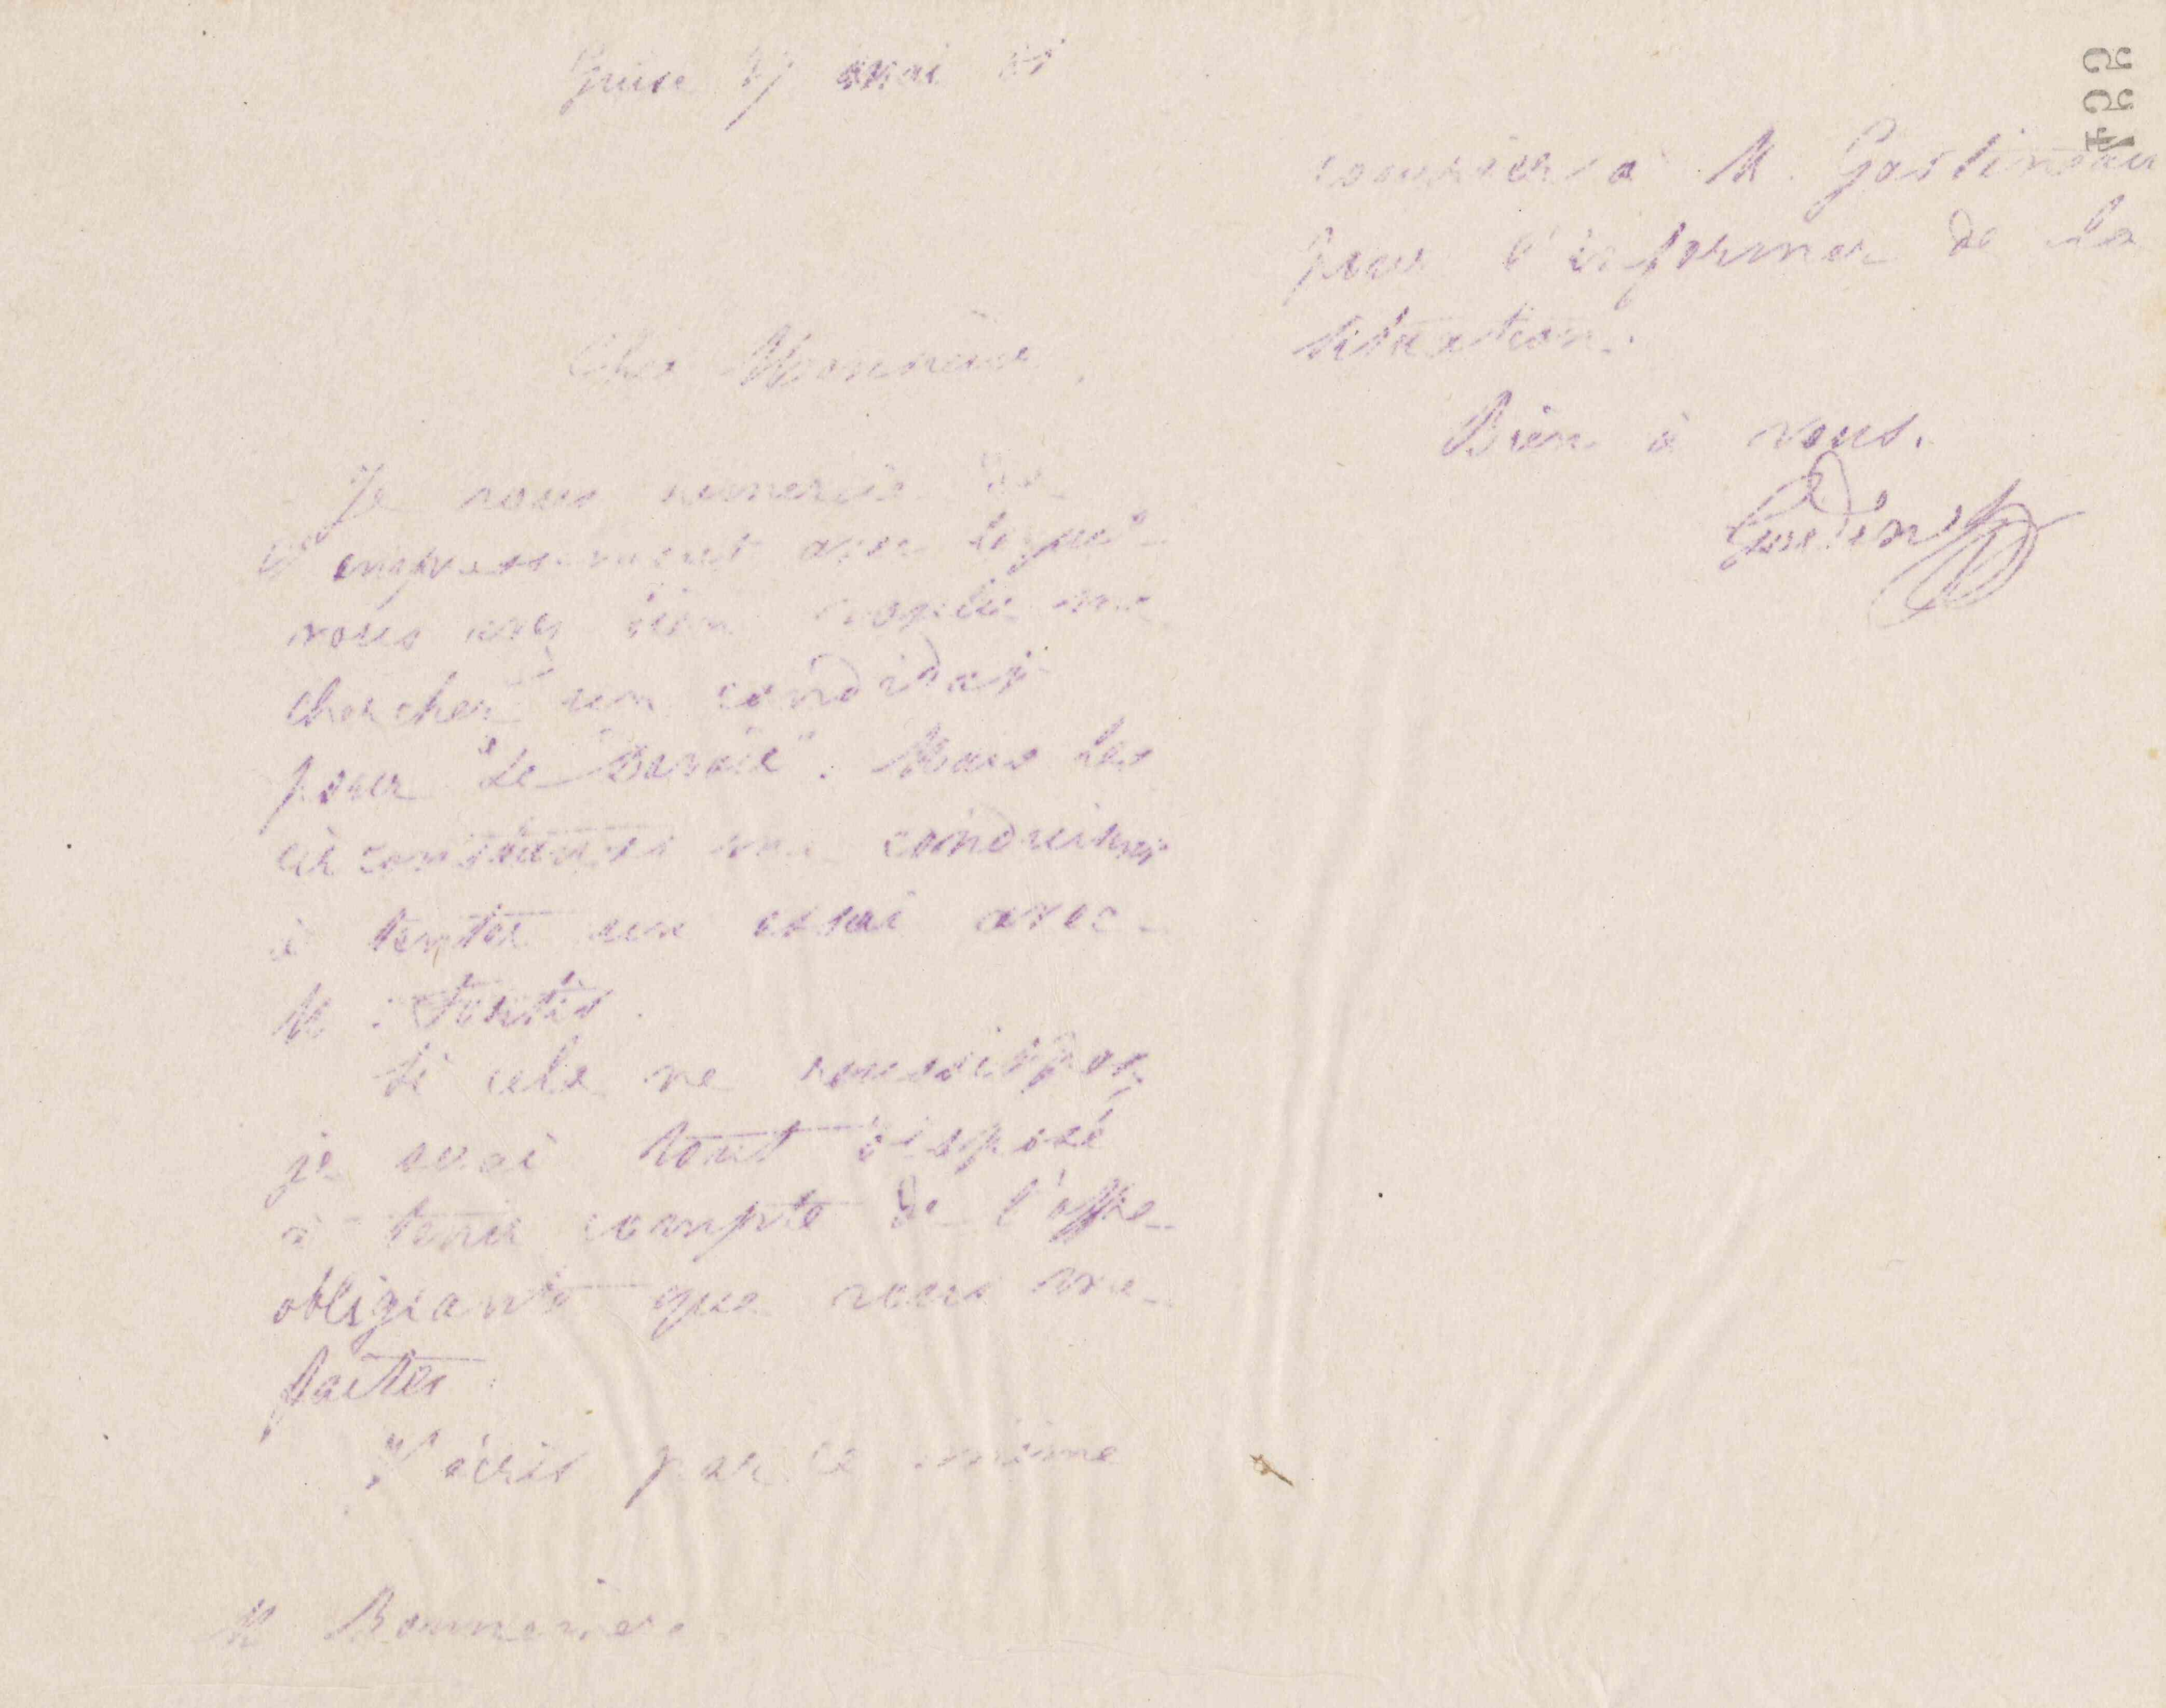 Guise 27 mai 81
Cher Monsieur,
Je vous remercie de
l'empressement avec lequel
vous avez bien voulu me
chercher un candidat
pour "Le Devoir". Mais les
circonstances me conduisent
à tenter un essai avec
M.
Si cela ne réussit pas
je serai tout disposé
à tenir compte de l'offre
obligeante que vous me
faites.
J'écris par le même
M Bonnemère.
courrier à M. Gastineau
pour l'informer de la
situation.
Bien à vous.
Godin
554